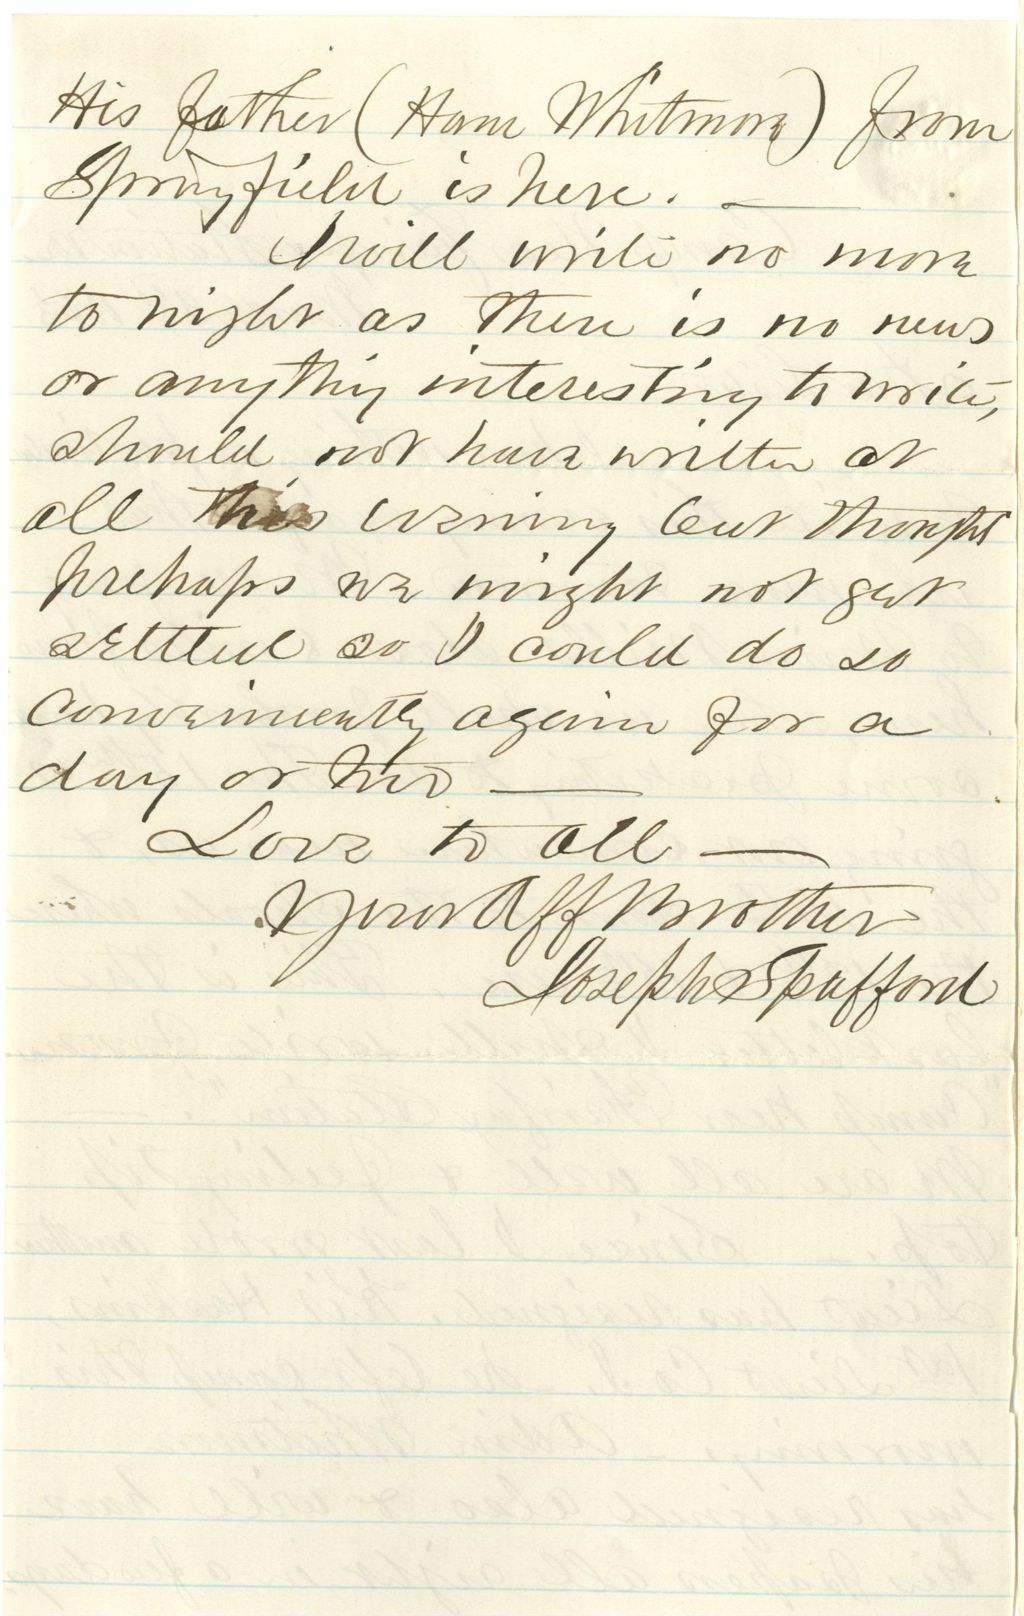 His father (Ham Whitmore) from
Springfield is here. —
I will write no more
to night as there is no news
or anything interesting to write,
should not have written at
all this evening but thought
perhaps we might not get
settled so I could do so
conveniently again for a
day or two —
Love to all —
Your Aff Brother
Joseph Spafford